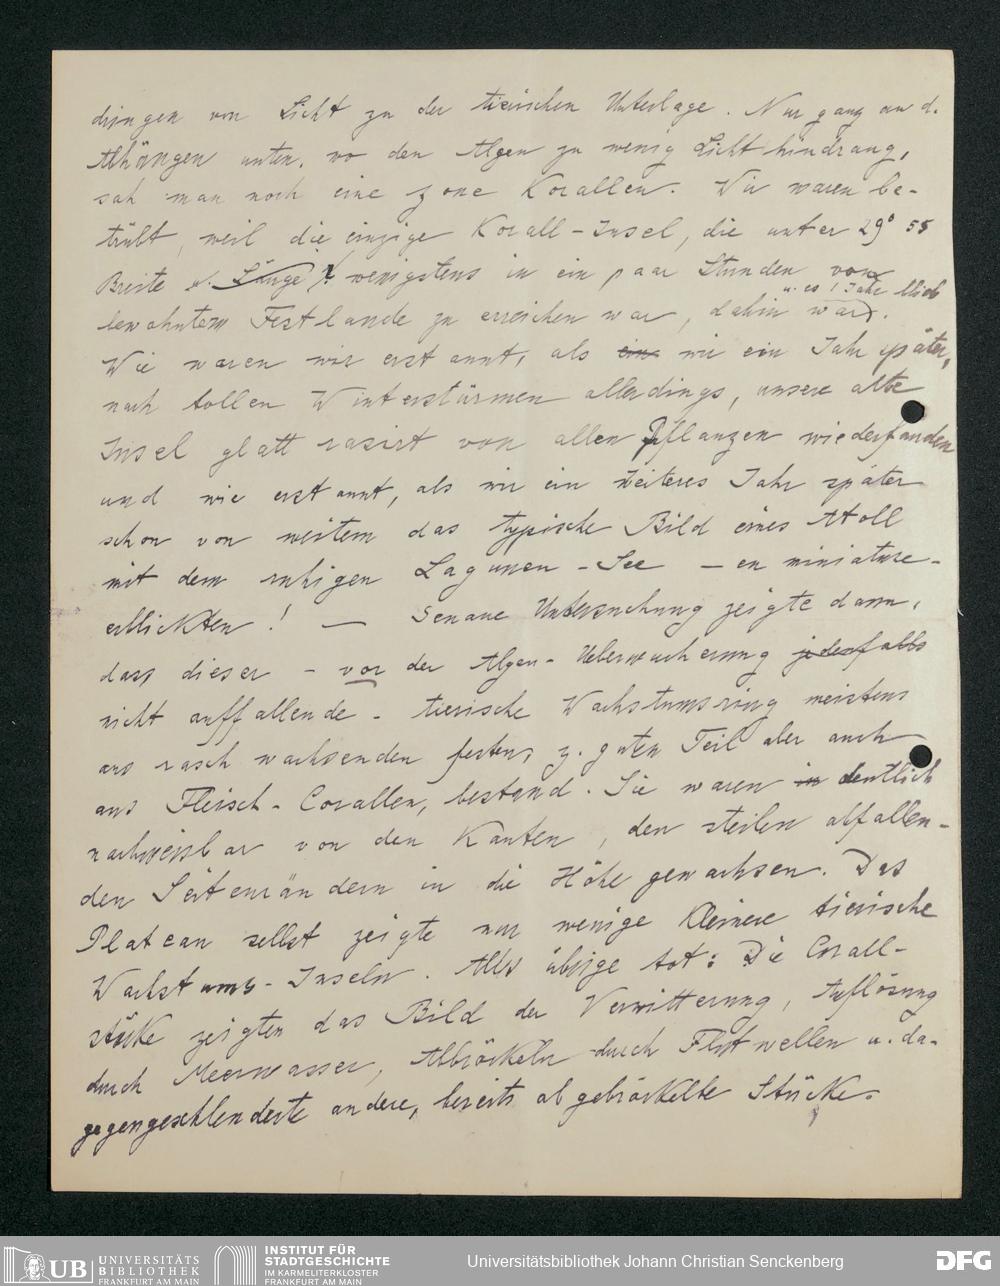 dringen von Licht zu der tierischen Unterlage. Nur ganz an d.
Abhängen unten, wo den Algen zu wenig Licht hindrang,
sah man noch eine Zone Korallen. Wir waren be-
trübt, weil die einzige Korall-Insel, die unter 29° 55
Breite u. Länge ? wenigstens in ein paar Stunden vom
u. es 1 Jahr
bewohntem Festlande zu erreichen war, dahin ward.
Wie waren wir erstaunt, als ein wir ein Jahr später,
nach tollen Winterstürmen allerdings, unsere alte
Insel glatt rasirt von allen Pflanzen wiederfanden
und wie erstaunt, als wir ein weiteres Jahr später
schon von weitem das typische Bild eines Atoll
mit dem ruhigen Lagunen-See – en miniature –
erblickten! — Genaue Untersuchung zeigte dann,
dass dieser – vor der Algen-Ueberwucherung jedenfalls
nicht auffallende – tierische Wachstumsring meistens
aus rasch wachsenden festen, z. guten Teil aber auch
aus Fleisch-Corallen, bestand. Sie waren in deutlich
nachweisbar von den Kanten, den steilen abfallen-
den Seitenrändern in die Höhe gewachsen. Das
Plateau selbst zeigte nur wenige kleinere tierische
Wachstums-Inseln. Alles übrige tot: Die Corall-
stücke zeigten das Bild der Verwitterung, Auflösung
durch Meerwasser, Abbröckeln durch Flutwellen u. da-
gegengeschleuderte andere, bereits abgebröckelte Stücke.
UB UNIVERSITÄTS
BIBLIOTHEK
FRANKFURT AM MAIN
INSTITUT FÜR
STADTGESCHICHTE
IM KARMELITERKLOSTER
FRANKFURT AM MAIN
Universitätsbibliothek Johann Christian Senckenberg
DFG